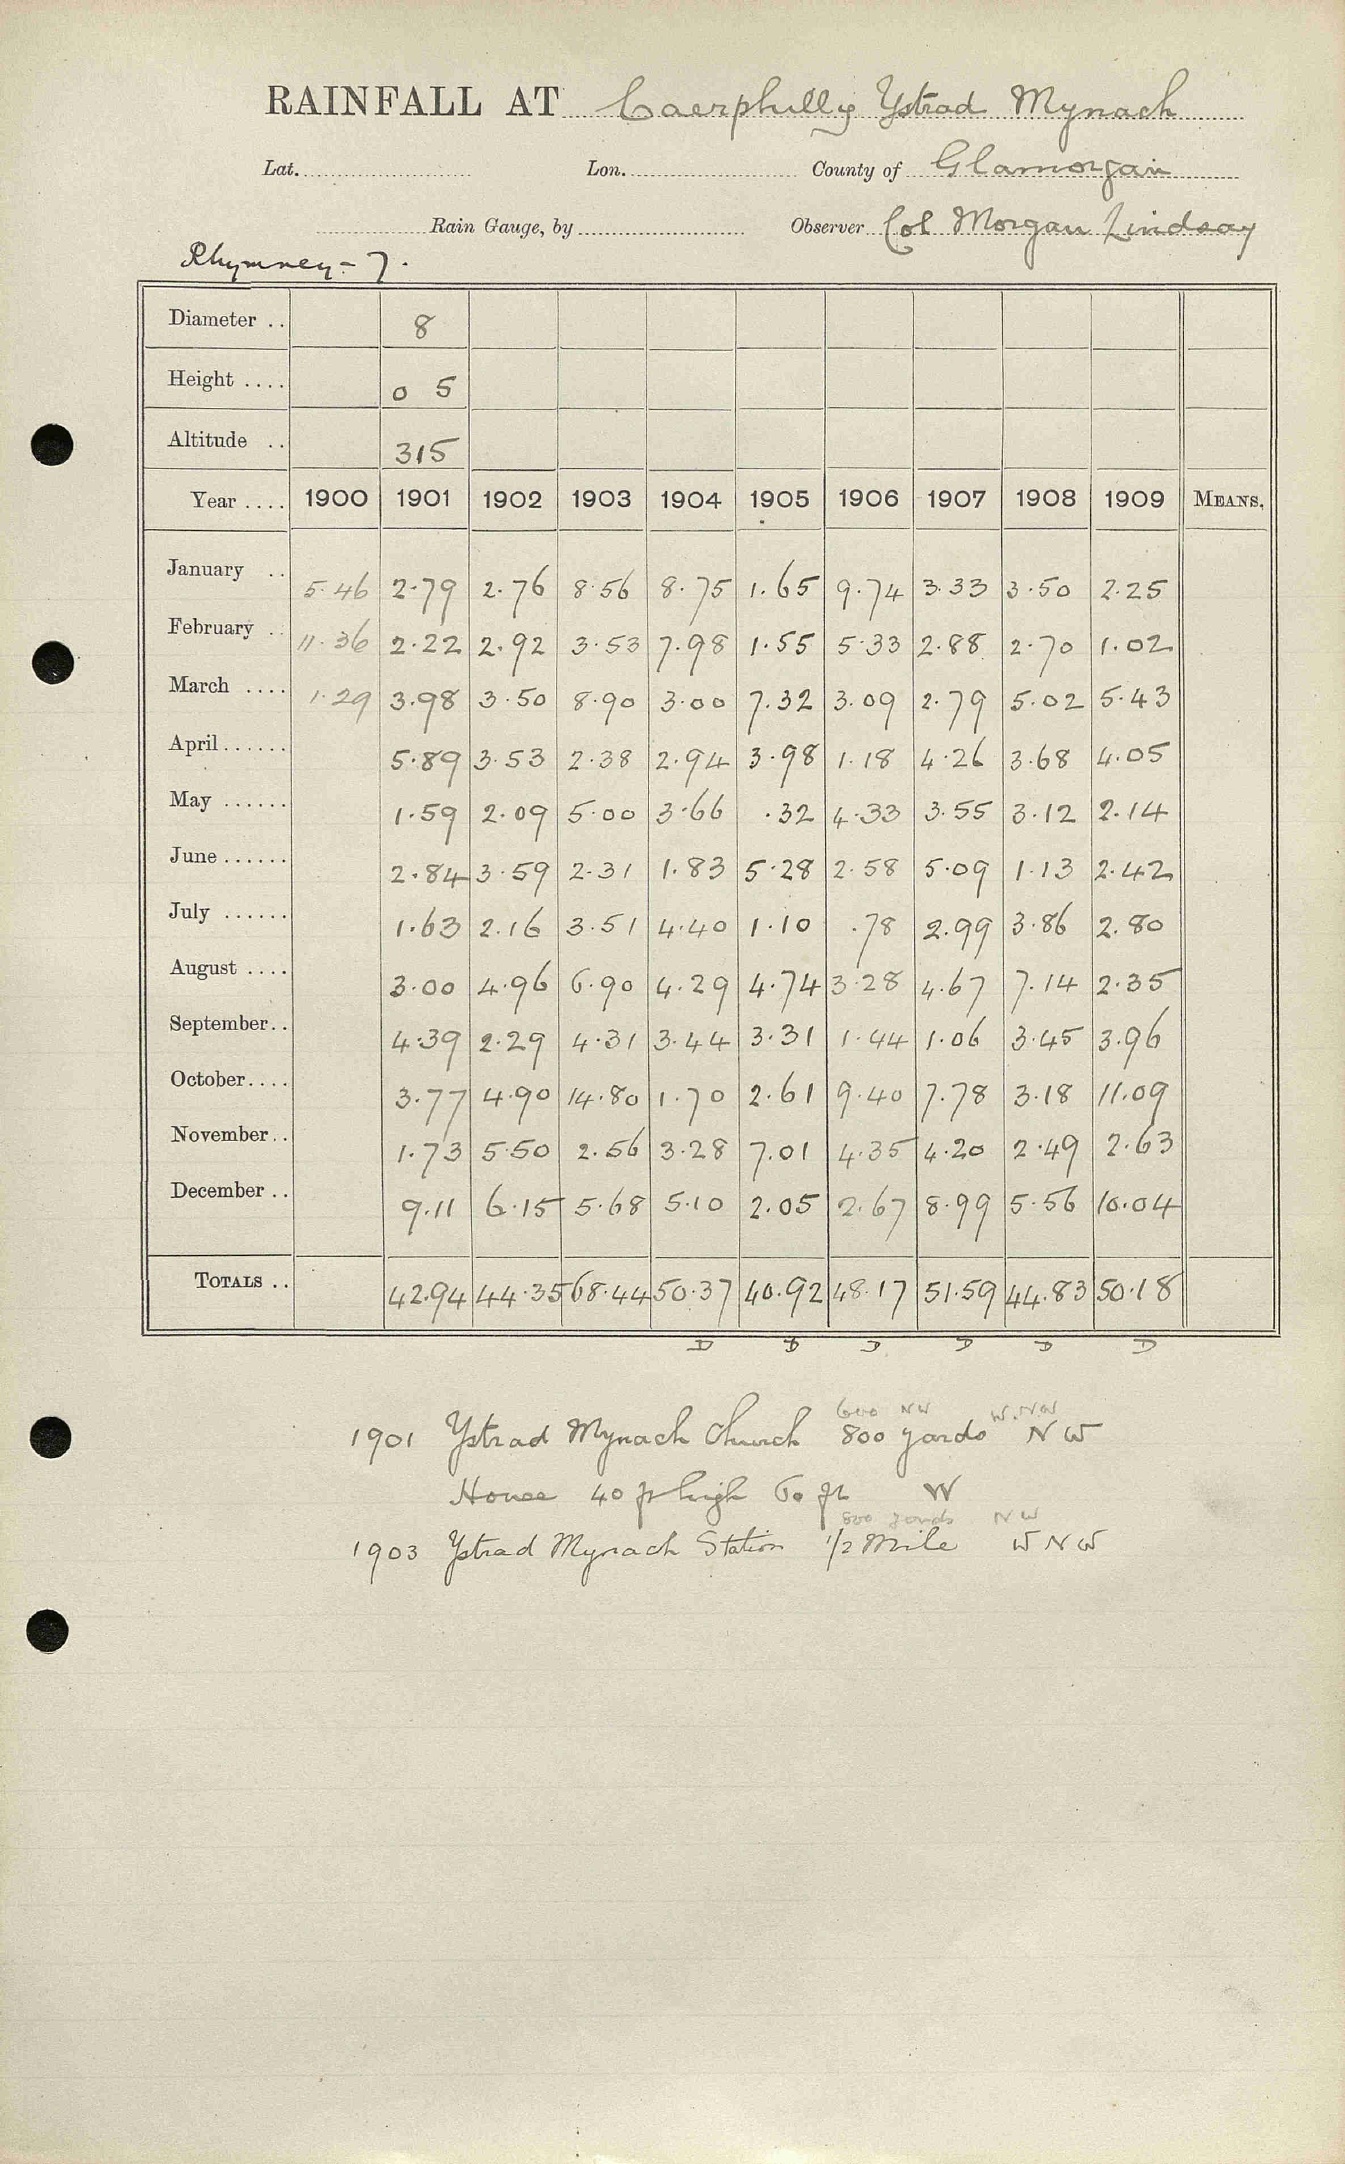 RAINFALL AT Caerphilly Ystrad Mynach
Lat. Lon. County of Glamorgan
Rain Gauge, by Observer Col Morgan Lindsay
Rhymney - 7.
Diameter .. 8
Height .... 0 5
Altitude .. 315
Year .... 1900 1901 1902 1903 1904 1905 1906 1907 1908 1909 MEANS.
January .. 5.46 2.79 2.76 8.56 8.75 1.65 9.74 3.33 3.50 2.25
February .. 11.36 2.22 2.92 3.53 7.98 1.55 5.33 2.88 2.70 1.02
March .... 1.29 3.98 3.50 8.90 3.00 7.32 3.09 2.79 5.02 5.43
April...... 5.89 3.53 2.38 2.94 3.98 1.18 4.26 3.68 4.05
May ...... 1.59 2.09 5.00 3.66 .32 4.33 3.55 3.12 2.14
June...... 2.84 3.59 2.31 1.83 5.28 2.58 5.09 1.13 2.42
July ...... 1.63 2.16 3.51 4.40 1.10 .78 2.99 3.86 2.80
August .... 3.00 4.96 6.90 4.29 4.74 3.28 4.67 7.14 2.35
September.. 4.39 2.29 4.31 3.44 3.31 1.44 1.06 3.45 3.96
October.... 3.77 4.90 14.80 1.70 2.61 9.40 7.78 3.18 11.09
November.. 1.73 5.50 2.56 3.28 7.01 4.35 4.20 2.49 2.63
December .. 9.11 6.15 5.68 5.10 2.05 2.67 8.99 5.56 10.04
TOTALS .. 42.94 44.35 68.44 50.37 40.92 48.17 51.59 44.83 50.18
D D D D D D
600 NW W.NW
1901 Ystrad Mynach Church 800 yards NW
House 40 ft high 60 ft W
800 yards NW
1903 Ystrad Mynach Station 1/2 Mile WNW